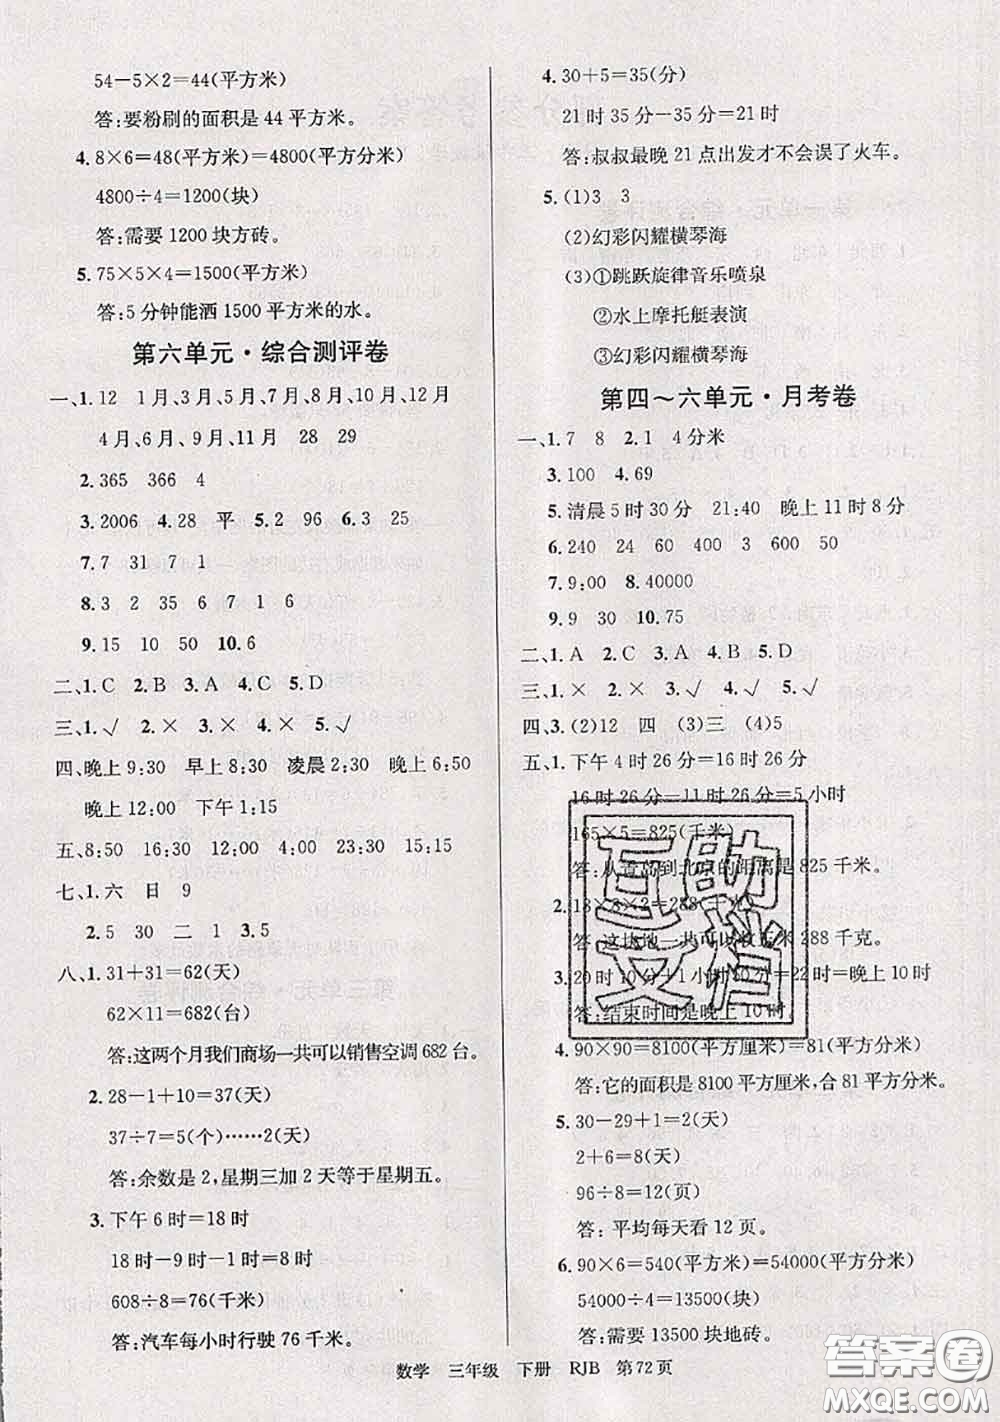 54－5×2＝44(平方米)
答:要粉刷的面积是 44 平方米。
4. 8×6＝48(平方米)＝4800(平方分米)
4800÷4＝1200(块)
答:需要 1200 块方砖。
5. 75×5×4＝1500(平方米)
答:5 分钟能洒 1500 平方米的水。
第六单元·综合测评卷
一、1. 12 1月、3月、5月、7月、8月、10月、12月
4月、6月、9月、11月 28 29
2. 365 366 4
3. 2006 4. 28 平 5. 2 96 6. 3 25
7. 7 31 7 1
8. 3 2 6 7 1 6
9. 15 10 50 10. 6
二、1. C 2. B 3. A 4. C 5. D
三、1. √ 2. × 3. × 4. × 5. √
四、晚上 9:30 早上 8:30 凌晨 2:30 晚上 6:50
晚上 12:00 下午 1:15
五、8:50 16:30 12:00 4:00 23:30 15:15
七、1. 六 日 9
2. 5 30 二 1 3. 5
八、1. 31＋31＝62(天)
62×11＝682(台)
答:这两个月我们商场一共可以销售空调 682 台。
2. 28－1＋10＝37(天)
37÷7＝5(个)……2(天)
答:余数是 2,星期三加 2 天等于星期五。
3. 下午 6 时＝18 时
18 时－9 时－1 时＝8 时
608÷8＝76(千米)
答:汽车每小时行驶 76 千米。
4. 30＋5＝35(分)
21 时 35 分－35 分＝21 时
答:叔叔最晚 21 点出发才不会误了火车。
5. (1)3 3
(2)幻彩闪耀横琴海
(3)①跳跃旋律音乐喷泉
②水上摩托艇表演
③幻彩闪耀横琴海
第四～六单元·月考卷
一、1. 7 8 2. 1 4 分米
3. 100 4. 69
5. 清晨 5 时 30 分 21:40 晚上 11 时 8 分
6. 240 24 60 400 3 600 50
7. 9:00 8. 40000
9. 9 30 10. 75
二、1. A 2. C 3. A 4. B 5. D
三、1. × 2. × 3. √ 4. √ 5. √
四、3. (2)12 四 (3)三 (4)5
五、1. 下午 4 时 26 分＝16 时 26 分
16 时 26 分－11 时 26 分＝5 小时
165×5＝825(千米)
答:从青岛到北京的距离是 825 千米。
2. 18×8×2＝288(千克)
答:这块地一共可以收玉米 288 千克。
3. 20 时 10 分＋1 小时 50 分＝22 时＝晚上 10 时
答:结束时间是晚上 10 时。
4. 90×90＝8100(平方厘米)＝81(平方分米)
答:它的面积是 8100 平方厘米,合 81 平方分米。
5. 30－29＋1＝2(天)
2＋6＝8(天)
96÷8＝12(页)
答:平均每天看 12 页。
6. 90×6＝540(平方米)＝54000(平方分米)
54000÷4＝13500(块)
答:需要 13500 块地砖。
互助文档
数学 三年级 下册 RJB 第 72 页
答案圈
MXQE.COM